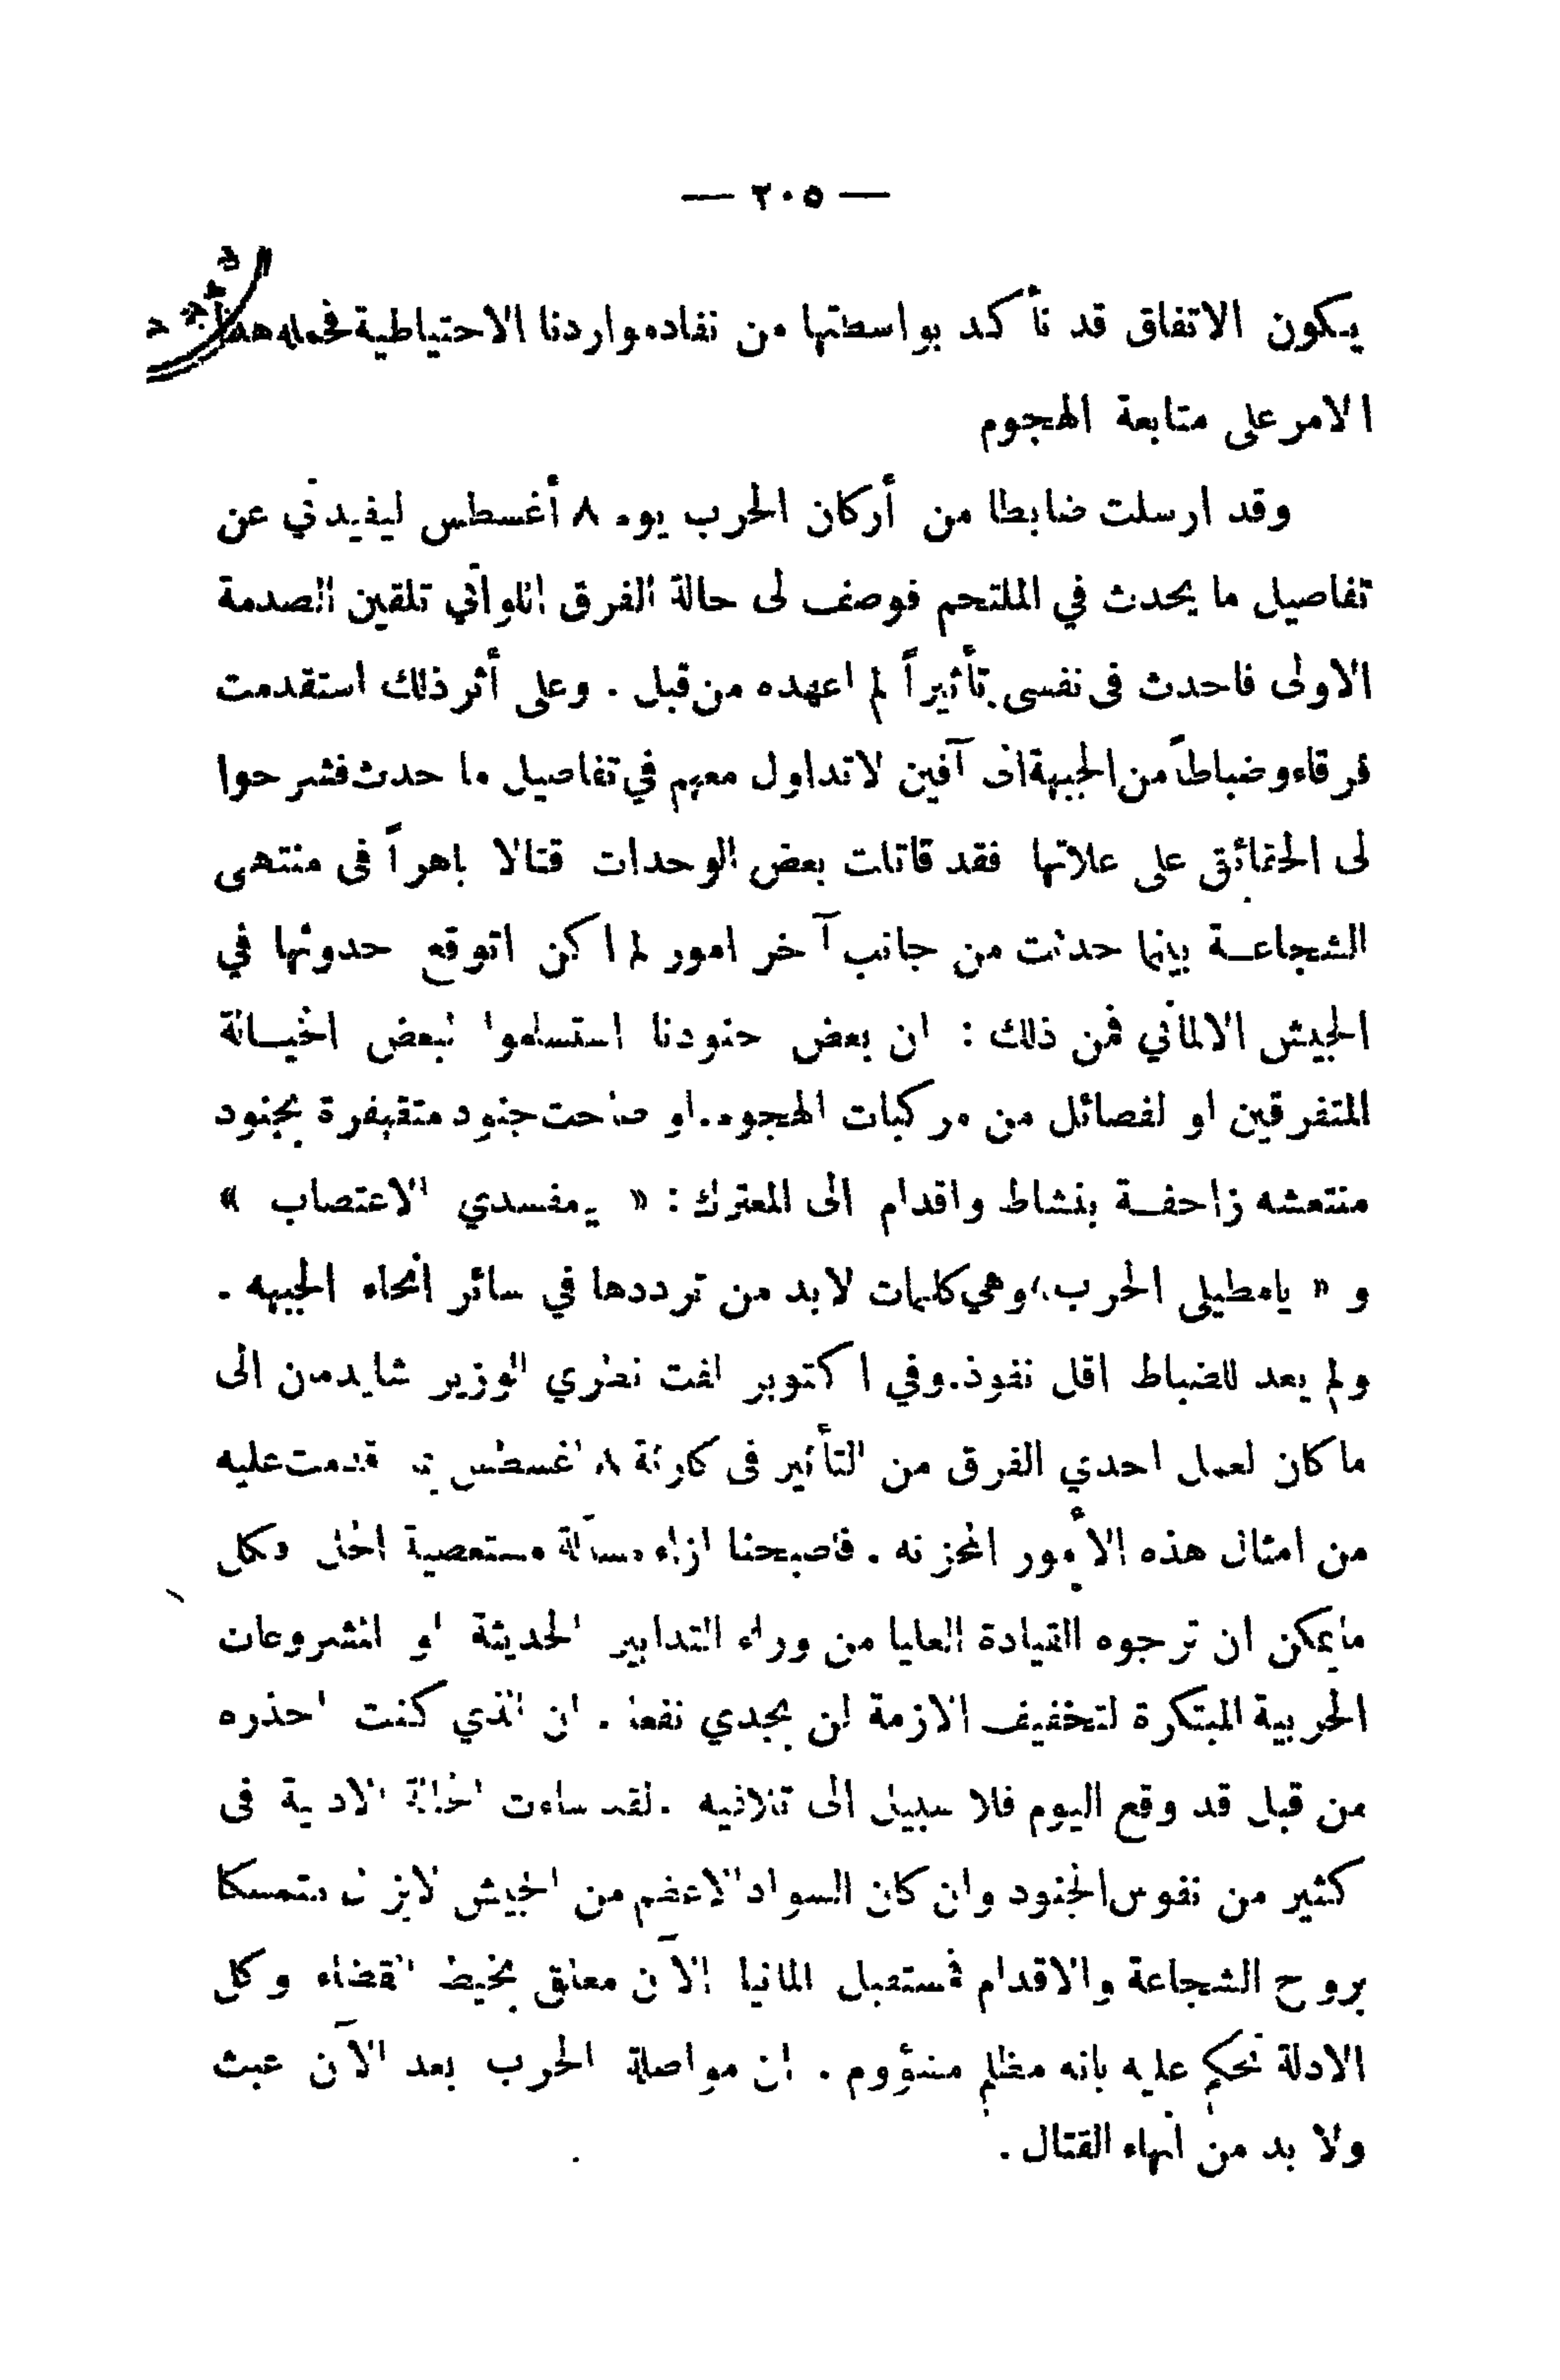 — ٢٠٥ —
يكون الاتفاق قد تأكد بواسطتها من نفاد مواردنا الاحتياطية فحمله هذا
الامر على متابعة الهجوم
وقد ارسلت ضابطا من أركان الحرب يوم ٨ أغسطس ليفيدني عن
تفاصيل ما يحدث في الملتحم فوصف لى حالة الفرق اللواتي تلقين الصدمة
الاولى فاحدث فى نفسى تأثيراً لم اعهده من قبل . وعلى أثر ذلك استقدمت
فرقاء وضباطاً من الجبهة الى آفين لاتداول معهم في تفاصيل ما حدث فشرحوا
لى الحقائق على علاتها فقد قاتلت بعض الوحدات قتالا باهراً فى منتهى
الشجاعة بينما حدثت من جانب آخر امور لم اكن اتوقع حدوثها في
الجيش الالماني فمن ذلك : ان بعض جنودنا استسلموا لبعض الخيالة
المتفرقين او لفصائل من مركبات الهجوم . او صاحت جنود متقهقرة بجنود
منتعشه زاحفة بنشاط واقدام الى المعترك : « يا مفسدي الاعتصاب »
و « يامطيلى الحرب » وهي كلمات لابد من ترددها في سائر انحاء الجبهه .
ولم يعد للضباط اقل نفوذ . وفي اكتوبر لفت نظري الوزير شايدمن الى
ما كان لعمل احدي الفرق من التأثير فى كارثة ٨ اغسطس بما قدمت عليه
من امثال هذه الأمور المحزنه . فاصبحنا ازاء مسألة مستعصية الحل وكل
مايمكن ان ترجوه القيادة العليا من وراء التدابير الحديثة او المشروعات
الحربية المبتكرة لتخفيف الازمة لن يجدي نفعا . ان الذي كنت احذره
من قبل قد وقع اليوم فلا سبيل الى تلافيه . لقد ساءت الحالة الادبية فى
كثير من نفوس الجنود وان كان السواد الاعظم من الجيش لايزال متمسكا
بروح الشجاعة والاقدام فمستقبل المانيا الآن معلق بخيط القضاء وكل
الادلة تحكم عليه بانه مظلم مشؤوم . ان مواصلة الحرب بعد الآن عبث
ولا بد من انهاء القتال .